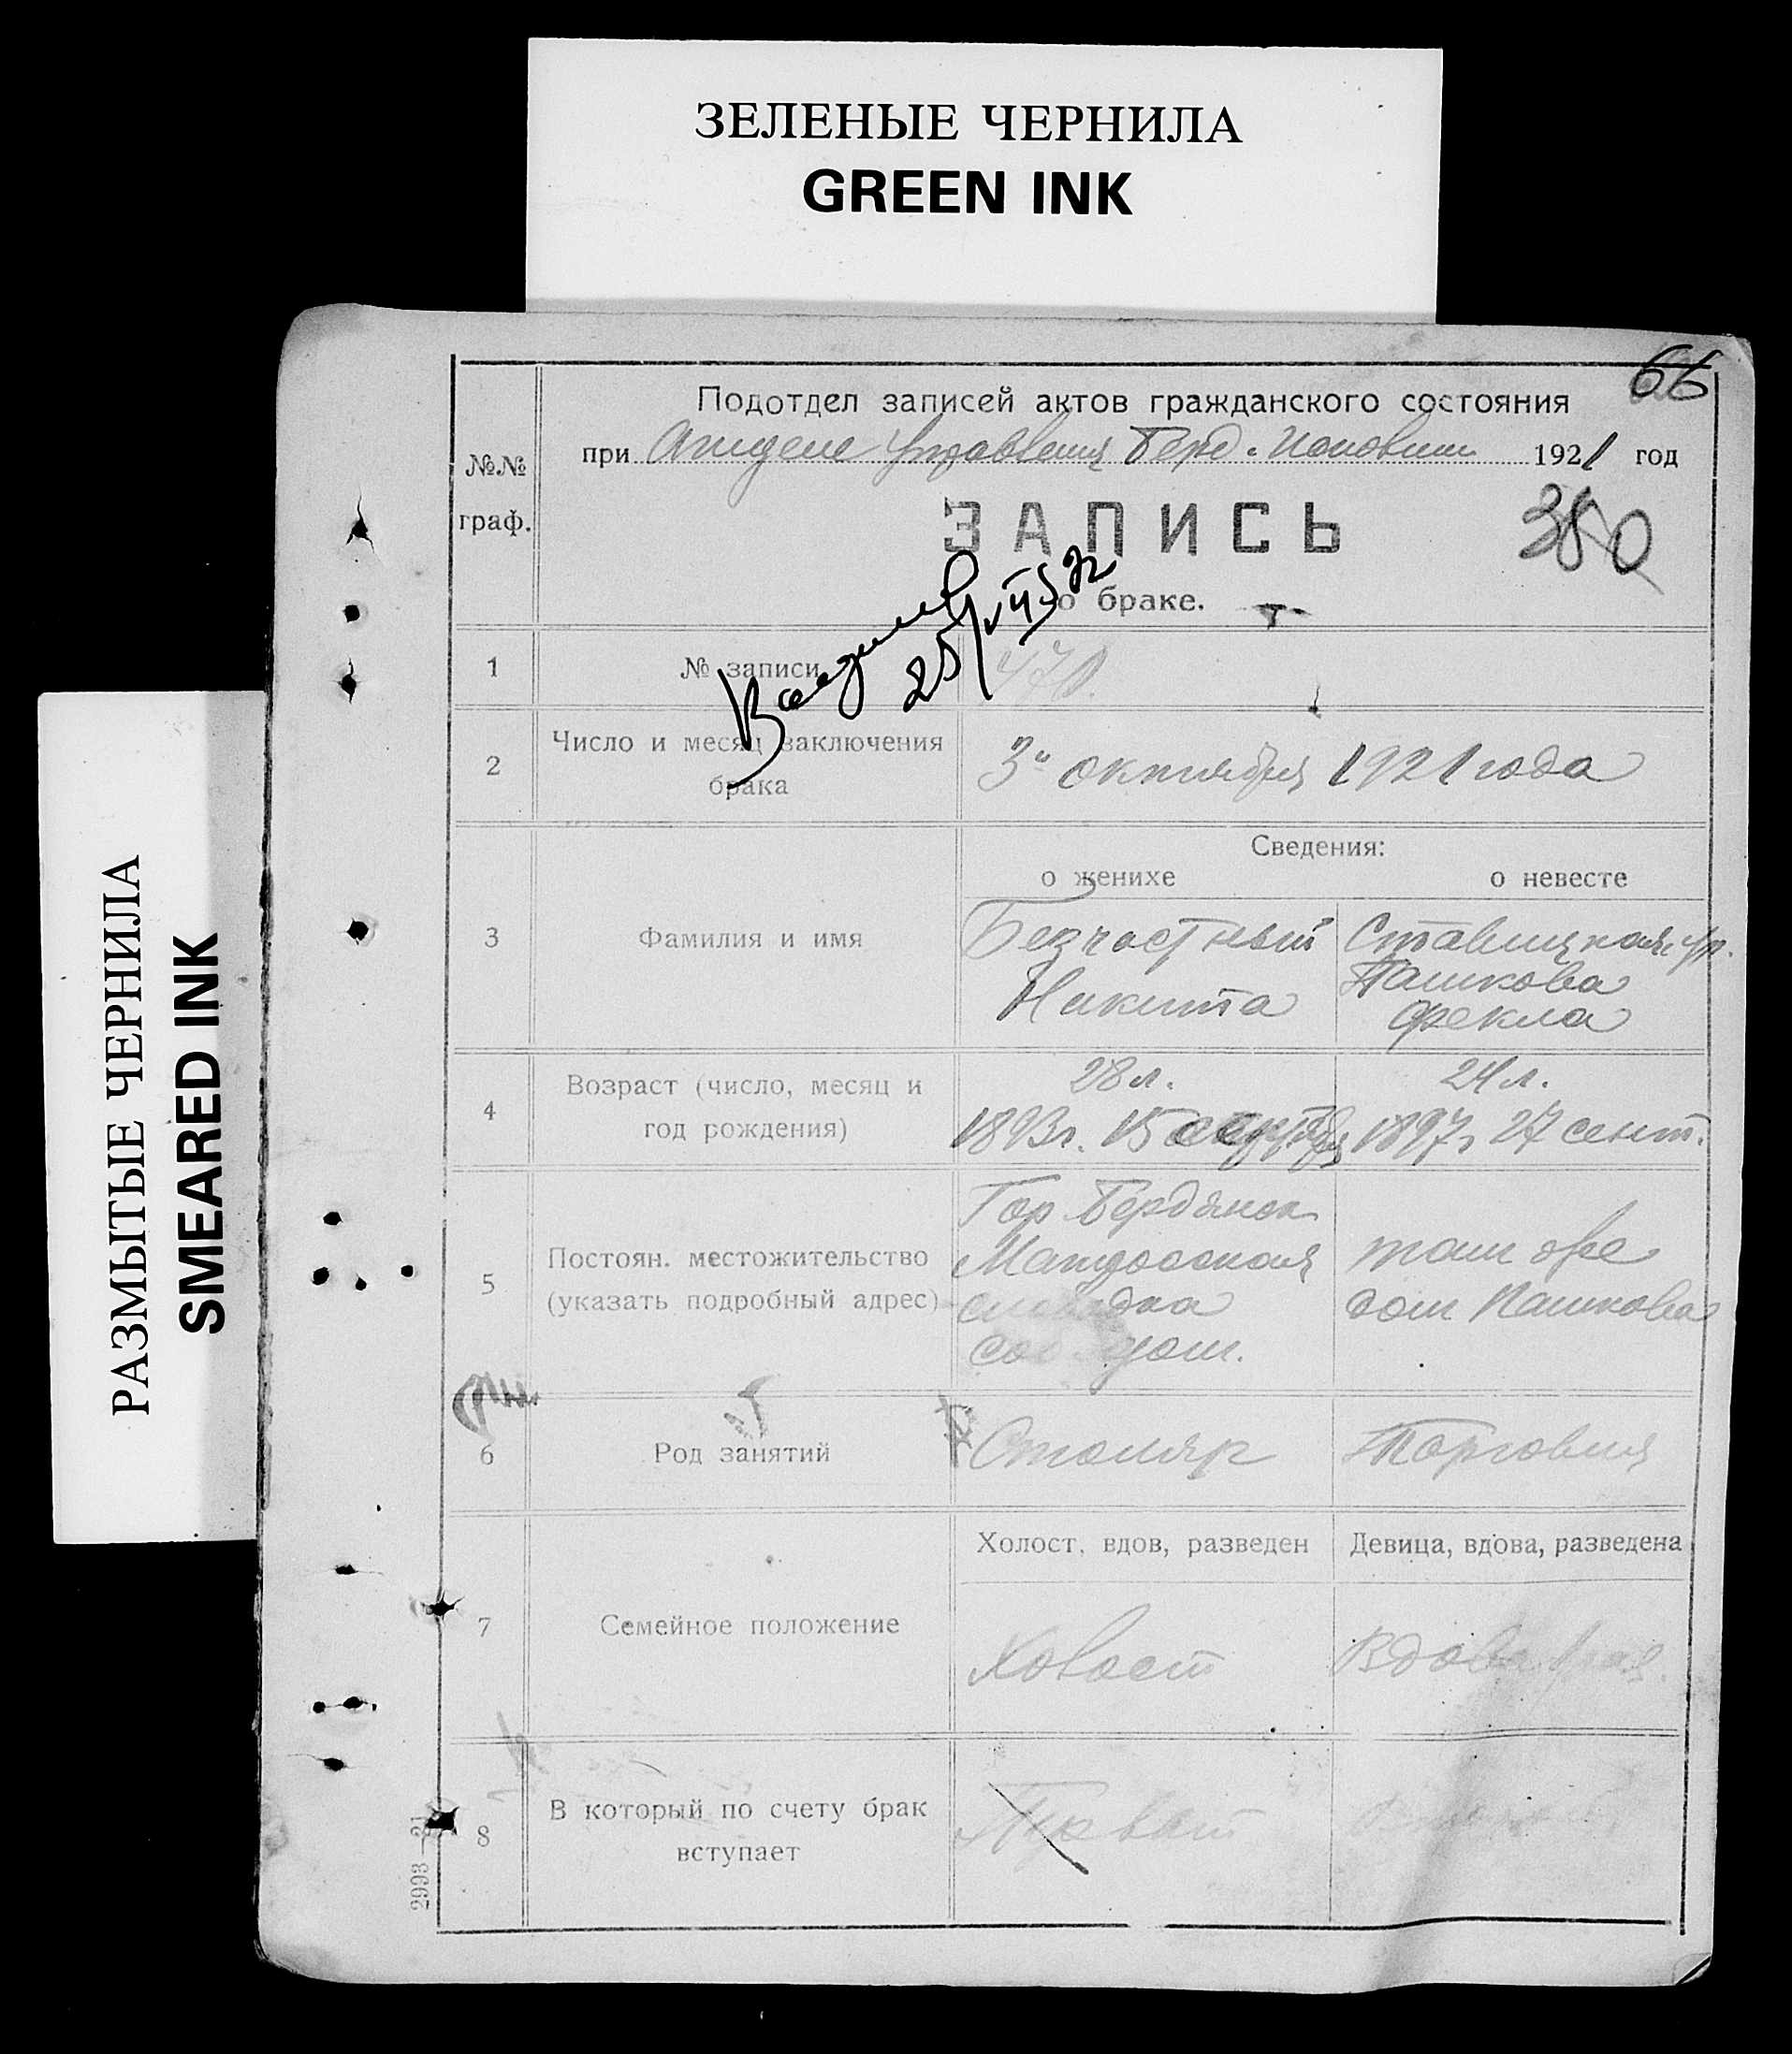 ЗЕЛЕНЫЕ ЧЕРНИЛА
GREEN INK
РАЗМЫТЫЕ ЧЕРНИЛА
SMEARED INK
66
Подотдел записей актов гражданского состояния
при Отделе Управления Берд. 1921 год
№№
граф.
ЗАПИСЬ
380
о браке.
1 № записи 470.
2 Число и месяц заключения
брака
3го октября 1921 года
Сведения:
о женихе о невесте
3 Фамилия и имя
Безчастный Ставицкая ур.
Никита Пашкова
Фекла
4 Возраст (число, месяц и
год рождения)
28 л. 24 л.
1893г. 15 1897г 27 сент.
5 Постоян. местожительство
(указать подробный адрес)
Гор Бердянск
Матросская
слободка
соб дом.
там же
дом Пашкова
6 Род занятий Столяр Торговля
Холост, вдов, разведен Девица, вдова, разведена
7 Семейное положение
Холост Вдова
8 В который по счету брак
вступает
Первый
2993—21